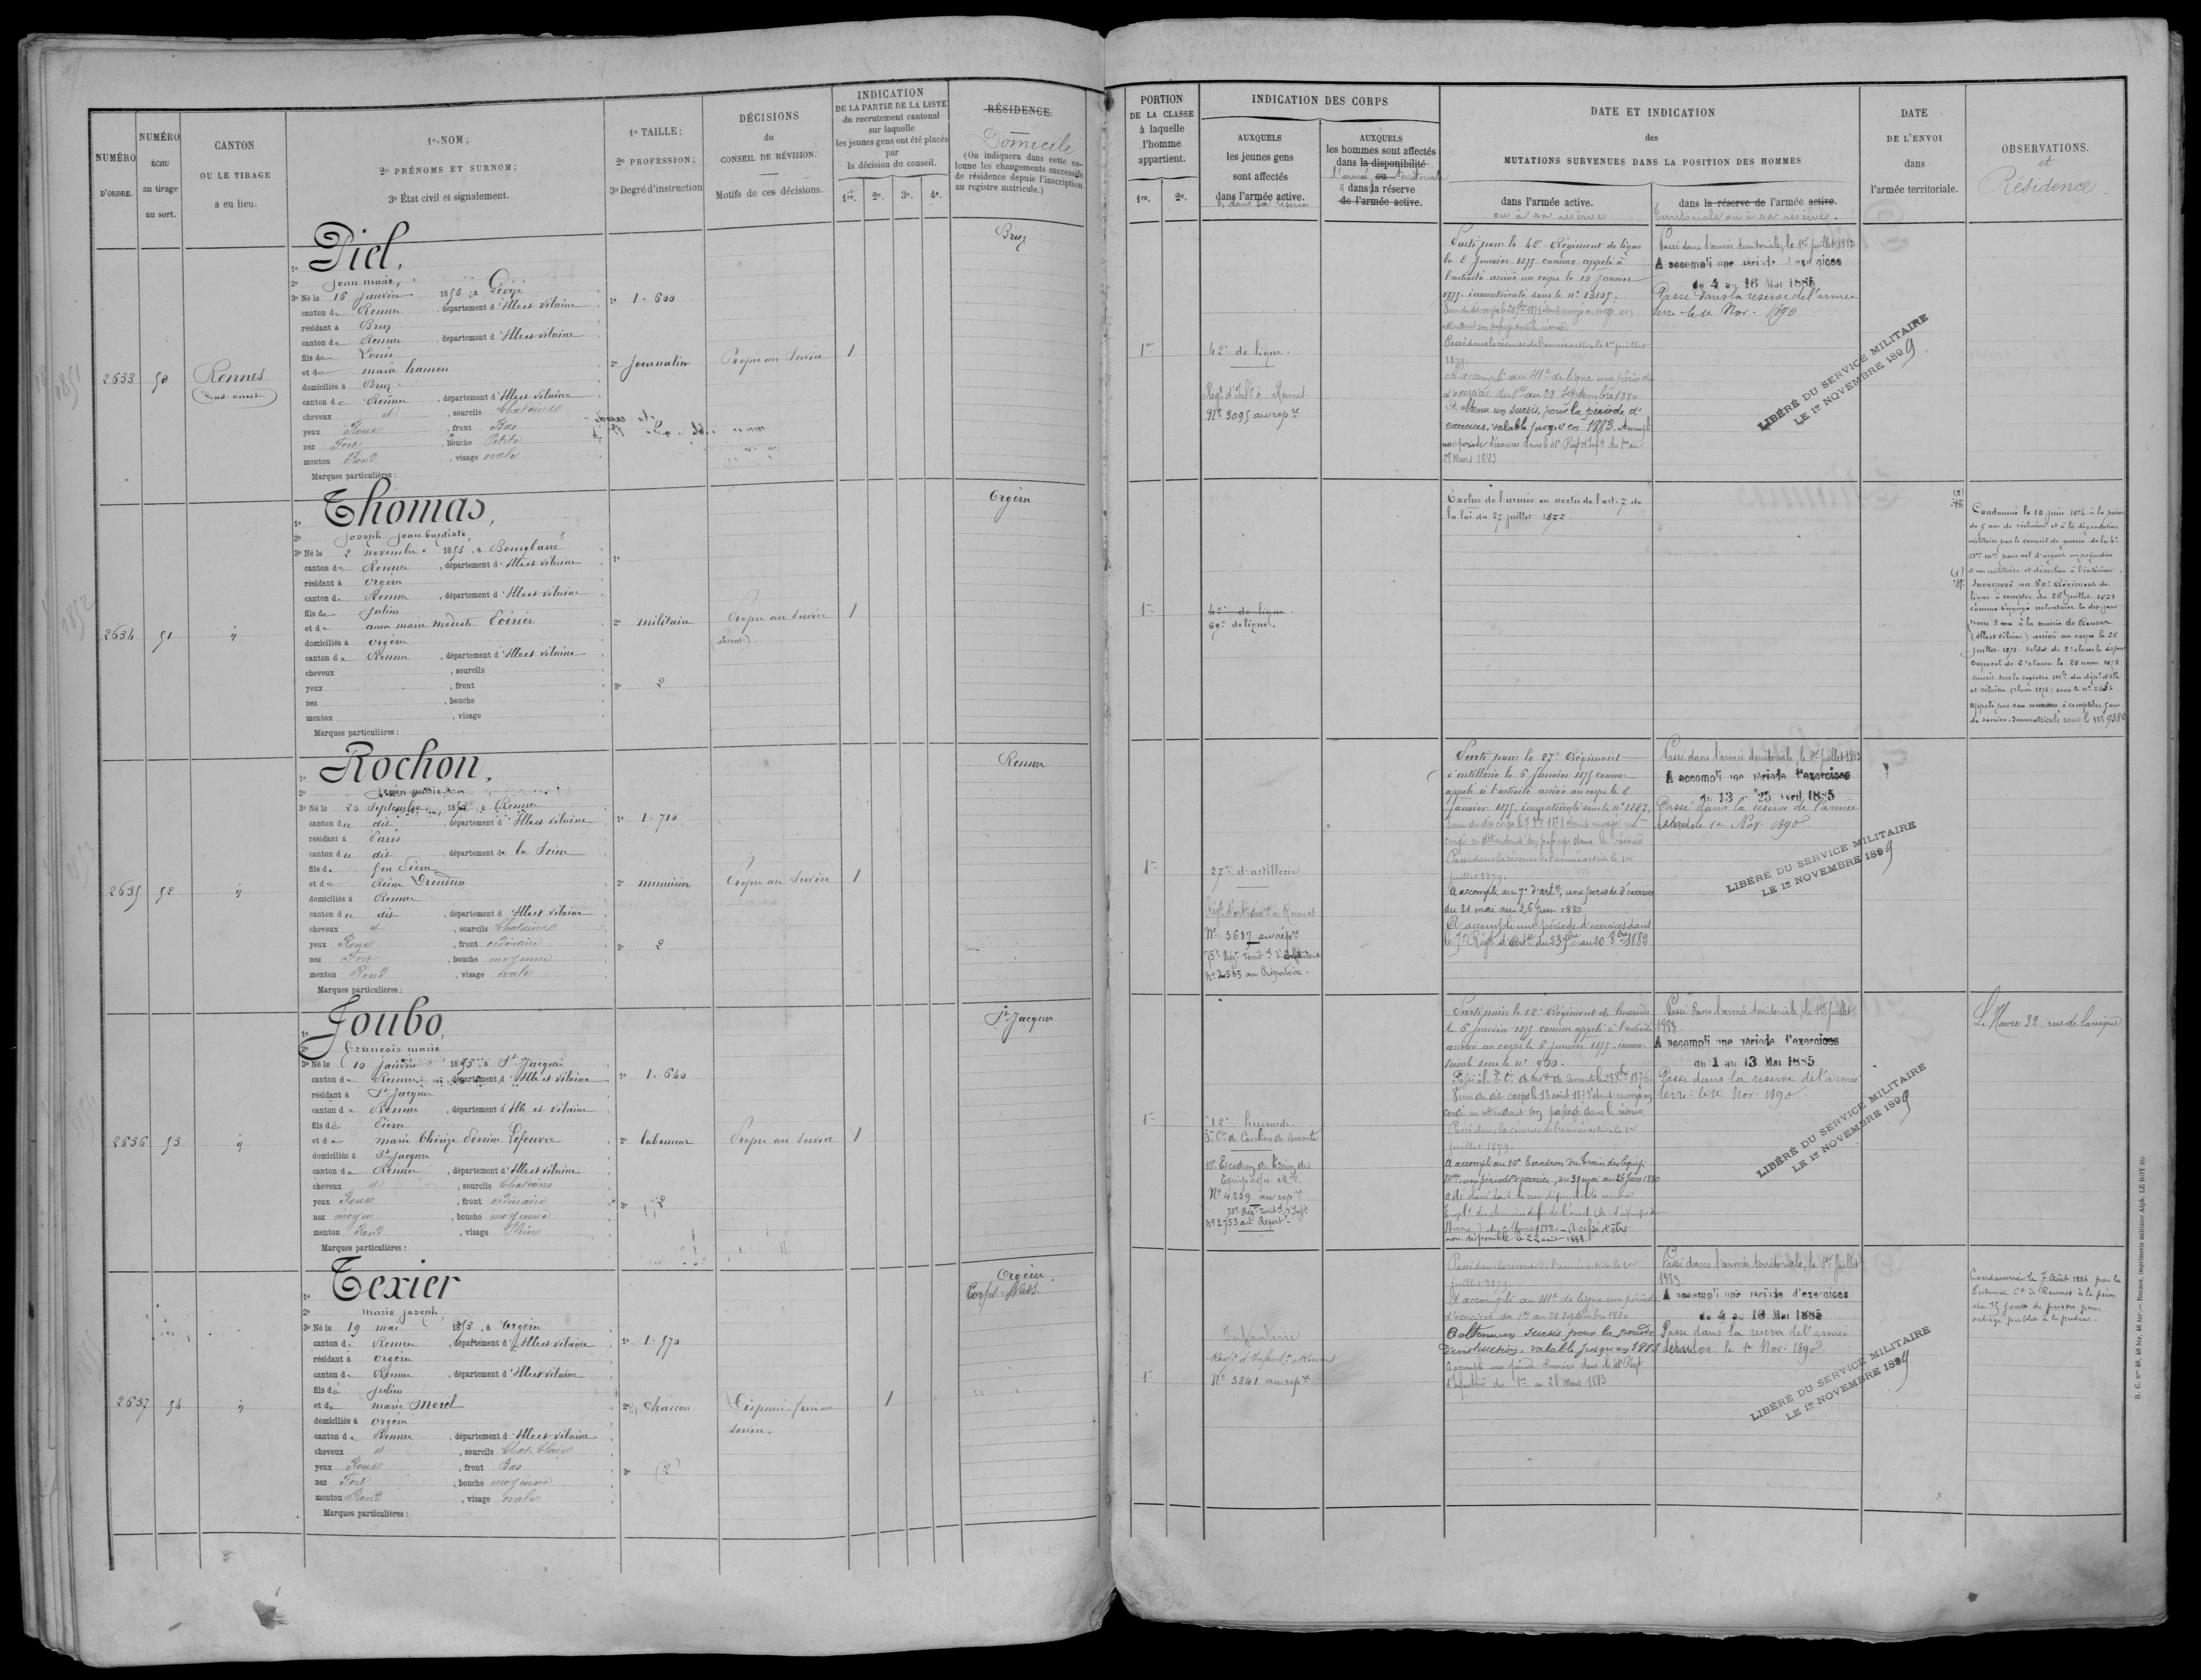 NUMÉRO D'ORDRE.
NUMÉRO ÉCHU au tirage au sort.
CANTON OU LE TIRAGE a eu lieu.
1º NOM;
2º PRÉNOMS ET SURNOM;
3º État civil et signalement.
1º TAILLE;
2º PROFESSION;
3º Degré d'instruction
DÉCISIONS
du
CONSEIL DE RÉVISION.
Motifs de ces décisions.
INDICATION
DE LA PARTIE DE LA LISTE
du recrutement cantonal
sur laquelle
les jeunes gens ont été placés
par
la décision du conseil.
1re. 2e. 3e. 4e.
RÉSIDENCE.
Domicile
(On indiquera dans cette co-
lonne les changements successifs
de résidence depuis l'inscription
au registre matricule.)
2633 50 Rennes
Sud-ouest
1º Piel,
2º Jean marie,
3º Né le 16 janvier 1853, à Gévezé
canton de Rennes, département d'Ille et Vilaine
résidant à Bruz
canton de Rennes, département d'Ille et Vilaine
fils de Louis
et de marie hamon
domiciliés à Bruz
canton de Rennes, département d'Ille et Vilaine
cheveux et, sourcils Chatains
yeux Roux, front Bas
nez Fort, bouche Petite
menton Rond, visage ovale
Marques particulières:
1º 1.600
2º Journalier
Propre au Service
1
Bruz
2634 51 id
1º Thomas,
2º Joseph Jean baptiste,
3º Né le 2 novembre 1853, à Bourgbarré
canton de Rennes, département d'Ille et Vilaine
résidant à orgères
canton de Rennes, département d'Ille et Vilaine
fils de Julien
et de anne marie modeste Poirier
domiciliés à orgères
canton de Rennes, département d'Ille et Vilaine
cheveux, sourcils
yeux, front
nez, bouche
menton, visage
Marques particulières:
1º
2º militaire
3º 2
Propre au Service
(absent)
1
Orgères
2635 52 id
1º Rochon,
2º
3º Né le 20 Septembre 1853, à Rennes
canton du dit, département d'Ille et Vilaine
résidant à Paris
canton du dit, département de la Seine
fils de feu Pierre
et de Reine Drouin
domiciliés à Rennes
canton du dit, département d'Ille et Vilaine
cheveux et, sourcils Chatains
yeux Roux, front ordinaire
nez Fort, bouche moyenne
menton Rond, visage ovale
Marques particulières:
1º 1.710
2º menuisier
3º 2
Propre au Service
1
Rennes
2636 53 id
1º Joubo,
2º François marie
3º Né le 10 janvier 1853, à St Jacques
canton de Rennes, département d'Ille et Vilaine
résidant à St Jacques
canton de Rennes, département d'Ille et Vilaine
fils de Pierre
et de marie thérèse Perrine Lefeuvre
domiciliés à St Jacques
canton de Rennes, département d'Ille et Vilaine
cheveux et, sourcils Chatains
yeux Roux, front ordinaire
nez moyen, bouche moyenne
menton Rond, visage Plein
Marques particulières:
1º 1.640
2º laboureur
3º 2
Propre au Service
1
St Jacques
2637 54 id
1º Texier
2º marie joseph
3º Né le 19 mai 1853, à Orgères
canton de Rennes, département d'Ille et Vilaine
résidant à orgères
canton de Rennes, département d'Ille et Vilaine
fils de Julien
et de marie Morel
domiciliés à orgères
canton de Rennes, département d'Ille et Vilaine
cheveux et, sourcils Chat. Clairs
yeux Roux, front Bas
nez Fort, bouche moyenne
menton Rond, visage ovale
Marques particulières:
1º 1.570
2º charron
3º 2
Dispensé frère au
service.
1
Orgères
PORTION
DE LA CLASSE
à laquelle
l'homme
appartient.
1re. 2e.
INDICATION DES CORPS
AUXQUELS
les jeunes gens
sont affectés
dans l'armée active.
& dans sa réserve
AUXQUELS
les hommes sont affectés
dans la disponibilité
l'armée ou territoriale
& dans la réserve
de l'armée active.
DATE ET INDICATION
des
MUTATIONS SURVENUES DANS LA POSITION DES HOMMES
dans l'armée active.
ou à sa réserve
dans la réserve de l'armée active.
territoriale ou à sa réserve.
DATE
DE L'ENVOI
dans
l'armée territoriale.
OBSERVATIONS.
et
Résidence.
1re
42e de ligne.
Régt d'Inf. à Rennes
No 3095 au rep.re
Parti pour le 42e Régiment de ligne
le 8 Janvier 1875 comme appelé à
l'activité arrivé au corps le 10 janvier
1875 - immatriculé sous le nº 13135.
Passé dans la réserve de l'armée active le 1er juillet
1879.
A accompli au 41e de ligne une période
d'exercices du 1er au 28 Septembre 1880
A obtenu un sursis, pour la période d'
exercices, valable jusqu'en 1883. A accompli
une période d'exercices dans le 41e Régt d'Infie du 1er au
28 Mars 1883
Passé dans l'armée territoriale, le 1er juillet 1883
A accompli une période d'exercices
du 4 au 16 Mai 1885
Passé dans la réserve de l'armée
terre le 1e Nov. 1890
LIBÉRÉ DU SERVICE MILITAIRE
LE 1er NOVEMBRE 1899
1re
42e de ligne.
69e de ligne.
Exclus de l'armée en vertu de l'art. 7 de
la loi du 27 juillet 1872.
(2)
Condamné le 10 juin 1874 à la peine
de 5 ans de réclusion et à la dégradation
militaire par le conseil de guerre de la 4e
Don mre pour vol d'argent au préjudice
d'un militaire et désertion à l'intérieur.
(1)
Incorporé au 50e Régiment de
ligne à compter du 26 juillet 1871
comme engagé volontaire le dit jour
pour 5 ans à la mairie de Rennes
(Ille et Vilaine) arrivé au corps le 28
juillet 1871. soldat de 2e classe le dit jour
1re
27e d'artillerie
Régt d'Artie à Rennes
No 3617 au rép.re
75e Régt territ.al d'Infanterie
No 2565 au Répertoire.
Parti pour le 27e Régiment
d'artillerie le 6 Janvier 1875 comme
appelé à l'activité arrivé au corps le 8
janvier 1875, immatriculé sous le nº 1887.
congé en attendant son passage dans la réserve
Passé dans la réserve de l'armée active le 1er
juillet 1879.
A accompli au 7e d'art.ie, une période d'exercices
du 31 mai au 26 juin 1880
A accompli une période d'exercices dans
le 7e Régt d'Artie du 23 7bre au 20 8bre 1882
Passé dans l'armée territoriale, le 1er juillet 1883
A accompli une période d'exercices
du 13 au 25 Avril 1885
Passé dans la réserve de l'armée
le 1e Nov. 1890
LIBÉRÉ DU SERVICE MILITAIRE
LE 1er NOVEMBRE 1899
1re
12e hussards
10e Escadron du train des
Equipages Mres
No 4259 au rep.re
75e Régt territ.al d'Infie
No 2753 au Répert.re
Parti pour le 12e Régiment de hussards
le 6 janvier 1875 comme appelé à l'activité
arrivé au corps le 8 janvier 1875 - imma-
triculé sous le nº 930.
congé en attendant son passage dans la réserve
Passé dans la réserve de l'armée active le 1er
juillet 1879.
A accompli au 10e Escadron du train des Equip.
Mres une période d'exercices, du 31 mai au 26 juin 1880
A cessé d'être
non disponible le 22 août 1883.
Passé dans l'armée territoriale, le 1er juillet
1883
A accompli une période d'exercices
du 1 au 13 Mai 1885
Passé dans la réserve de l'armée
terre le 1e Nov. 1890
LIBÉRÉ DU SERVICE MILITAIRE
LE 1er NOVEMBRE 1899
Le Havre 32, rue de
1re
Infanterie
Régt d'Infant.ie Rennes
No 3841 au rep.re
Passé dans la réserve de l'armée active le 1er
juillet 1879.
A accompli au 41e de ligne une période
d'exercices du 1er au 28 Septembre 1880
A obtenu un sursis pour la période
d'instruction, valable jusqu'en 1883
A accompli une période d'exercices dans le 41e Régt
d'Infanterie du 1er au 28 Mars 1883
Passé dans l'armée territoriale, le 1er juillet
1883
A accompli une période d'exercices
du 4 au 16 Mai 1885
Passé dans la réserve de l'armée
le 1e Nov. 1890
LIBÉRÉ DU SERVICE MILITAIRE
LE 1er NOVEMBRE 1899
Condamné le 7 Août 1884 par le
tribunal Cel de Rennes à la peine
de 15 jours de prison pour
outrage public à la pudeur.
Rennes, imprimerie militaire Alph. LE ROY fils.